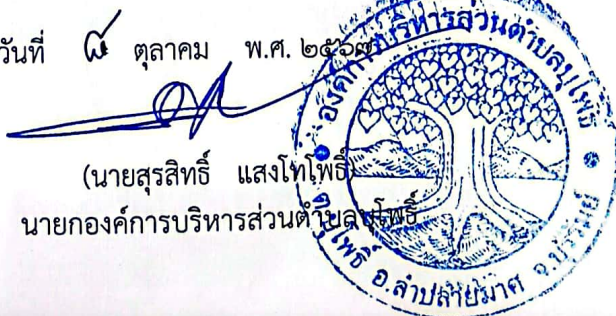 วันที่ ๘ ตุลาคม พ.ศ. ๒๕๖๗
(นายสุรสิทธิ์ แสงโทโพธิ์)
นายกองค์การบริหารส่วนตำบลบุโพธิ์
องค์การบริหารส่วนตำบลบุโพธิ์
ต.บุโพธิ์ อ.ลำปลายมาศ จ.บุรีรัมย์